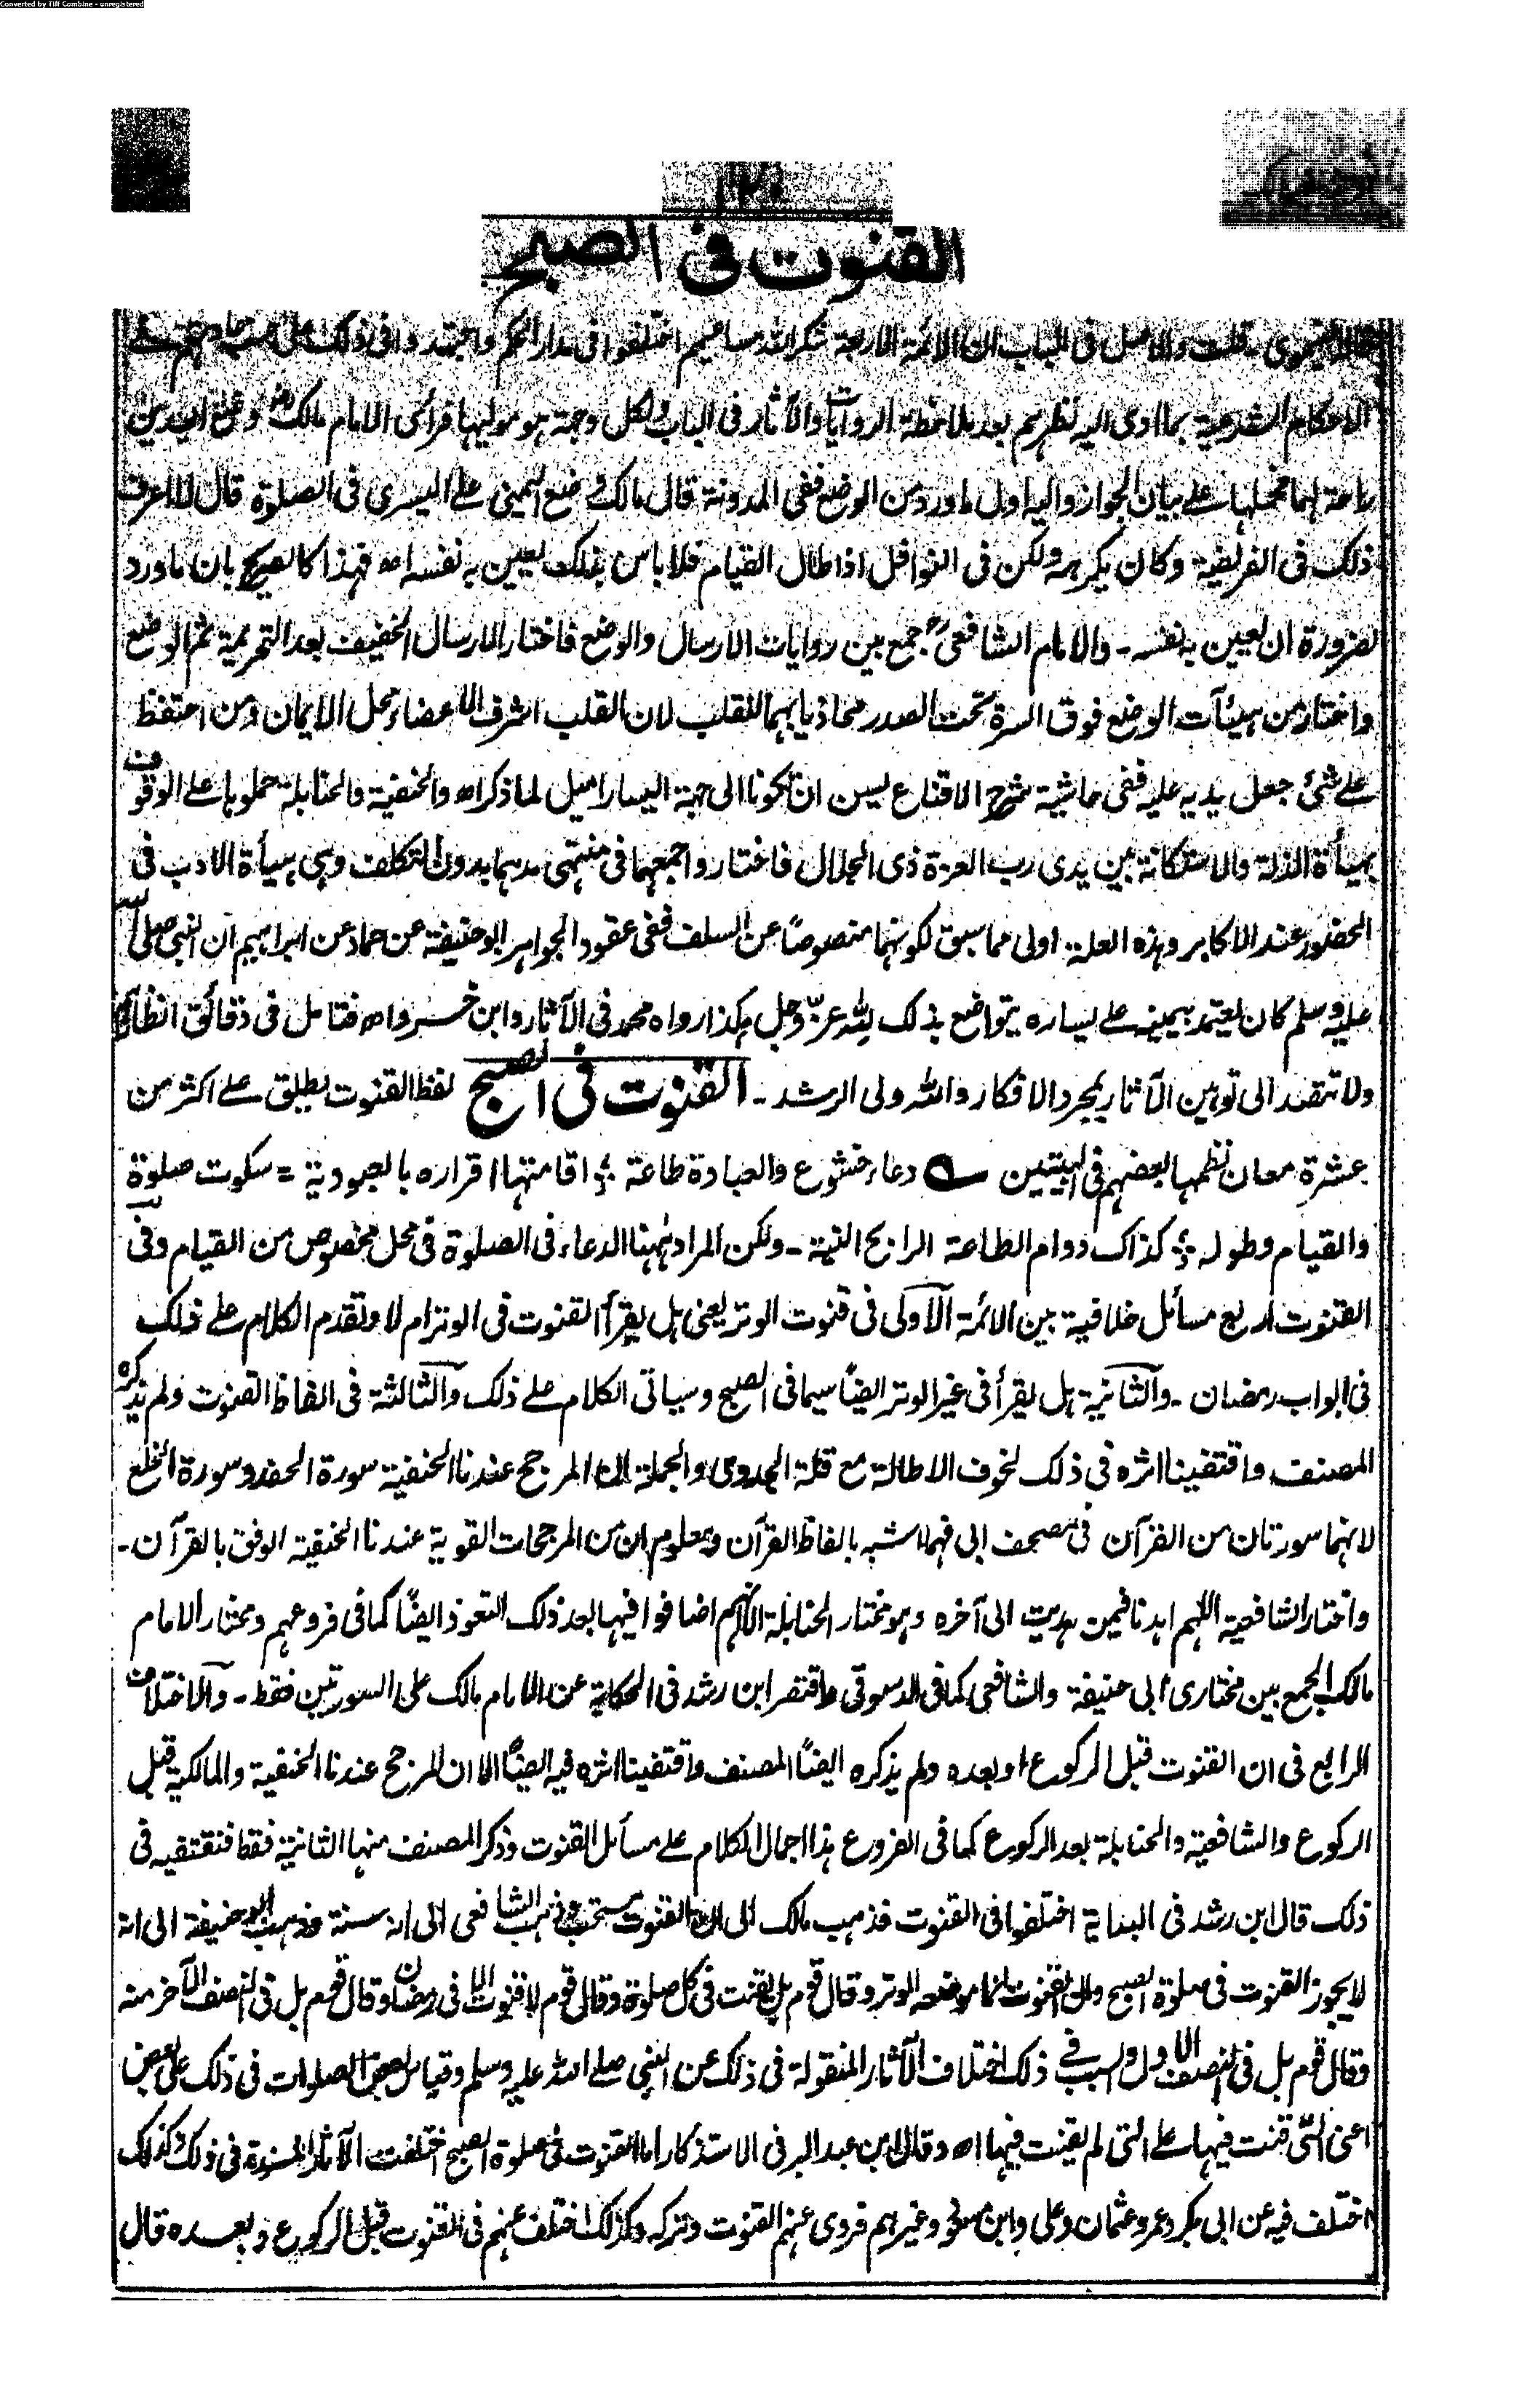 Converted by Tiff Combine - unregistered
١٢٠
القنوت فى الصبح
قلت والاصل فى الباب ان الائمة الاربعة شكر الله مساعيهم اختلفوا فى مدار الحكم واجتهدوا فى ذلك على
الاحكام الشرعية بما ادى اليه نظرهم بعد ملاحظة الروايات والآثار فى الباب ولكل وجهة هو موليها فرأى الامام مالك وضع اليدين
راحة لهما فحملها على بيان الجواز واليه اول ما ورد من الوضع ففى المدونة قال مالك فى وضع اليمنى على اليسرى فى الصلوة قال لا اعرف
ذلك فى الفريضة وكان يكرهه ولكن فى النوافل اذا طال القيام فلا باس بذلك يعين به نفسه اه فهذا كالصريح بان ما ورد
لضرورة ان يعين به نفسه - والامام الشافعى رح جمع بين روايات الارسال والوضع فاختار الارسال الخفيف بعد التحريمة ثم الوضع
واختار من هيئآت الوضع فوق السرة تحت الصدر محاذيا بهما للقلب لان القلب اشرف الاعضاء محل الايمان ومن احتفظ
على شئ جعل يديه عليه ففى حاشية شرح الاقناع يسن ان تكونا الى جهة اليسار اميل لما ذكر اه والحنفية والحنابلة حملوها على الوقوف
بهيأة الذلة والاستكانة بين يدى رب العزة ذى الجلال فاختاروا جمعهما فى منتهى مدهما بدون التكلف وهى هيأة الادب فى
الحضور عند الاكابر وهذه العلة اولى مما سبق لكونهما منصوصًا عن السلف ففى عقود الجواهر ابو حنيفة عن حماد عن ابراهيم ان النبى صلى الله
عليه وسلم كان يعتمد بيمينه على يساره يتواضع بذلك لله عزّ وجل هكذا رواه محمد فى الآثار وابن خسرو اه فتامل فى دقائق انظارهم
ولا تقصد الى توهين الآثار بمجرد الافكار والله ولى الرشد - القنوت فى الصبح لفظ القنوت يطلق على اكثر من
عشرة معان نظمها بعضهم فى البيتين ؎ دعاء خشوع والعبادة طاعة ؛ اقامتها اقراره بالعبودية = سكوت صلوة
والقيام وطوله ؛ كذاك دوام الطاعة الرابح النية - ولكن المراد ههنا الدعاء فى الصلوة فى محل مخصوص من القيام وفى
القنوت اربع مسائل خلافية بين الائمة الاولى فى قنوت الوتر يعنى هل يقرأ القنوت فى الوتر ام لا وتقدم الكلام على ذلك
فى ابواب رمضان - والثانية هل يقرأ فى غير الوتر ايضًا سيما فى الصبح وسياتى الكلام على ذلك والثالثة فى الفاظ القنوت ولم يذكره
المصنف واقتفينا اثره فى ذلك لخوف الاطالة مع قلة الجدوى والجملة ان المرجح عندنا الحنفية سورة الحفد وسورة الخلع
لانهما سورتان من القرآن فى مصحف ابى فهما اشبه بالفاظ القرآن ومعلوم ان من المرجحات القوية عندنا الحنفية الوفق بالقرآن -
واختار الشافعية اللهم اهدنا فيمن هديت الى آخره وهو مختار الحنابلة الا انهم اضافوا فيها بعد ذلك التعوذ ايضًا كما فى فروعهم ومختار الامام
مالك الجمع بين مختارى ابى حنيفة والشافعى كما فى الدسوقى واقتصر ابن رشد فى الحكاية عن الامام مالك على السورتين فقط - والاختلاف
الرابع فى ان القنوت قبل الركوع او بعده ولم يذكره ايضًا المصنف واقتفينا اثره فيه ايضًا الا ان المرجح عندنا الحنفية والمالكية قبل
الركوع والشافعية والحنابلة بعد الركوع كما فى الفروع هذا اجمال الكلام على مسائل القنوت وذكر المصنف منها الثانية فقط فنقتفيه فى
ذلك قال ابن رشد فى البداية اختلفوا فى القنوت فذهب مالك الى ان القنوت مستحب وذهب الشافعى الى انه سنة وذهب ابو حنيفة الى انه
لا يجوز القنوت فى صلوة الصبح وان القنوت انما موضعه الوتر وقال قوم بل يقنت فى كل صلوة وقال قوم لا قنوت الا فى رمضان وقال قوم بل فى النصف الآخر منه
وقال قوم بل فى النصف الاول والسبب فى ذلك اختلاف الآثار المنقولة فى ذلك عن النبى صلى الله عليه وسلم وقياس بعض الصلوات فى ذلك على بعض
اعنى التى قنت فيها على التى لم يقنت فيها اه وقال ابن عبد البر فى الاستذكار اما القنوت فى صلوة الصبح اختلفت الآثار المسندة فى ذلك وكذلك
اختلف فيه عن ابى بكر وعمر وعثمان وعلى وابن مسعود وغيرهم فروى عنهم القنوت وتركه وكذلك اختلف عنهم فى القنوت قبل الركوع وبعده قال